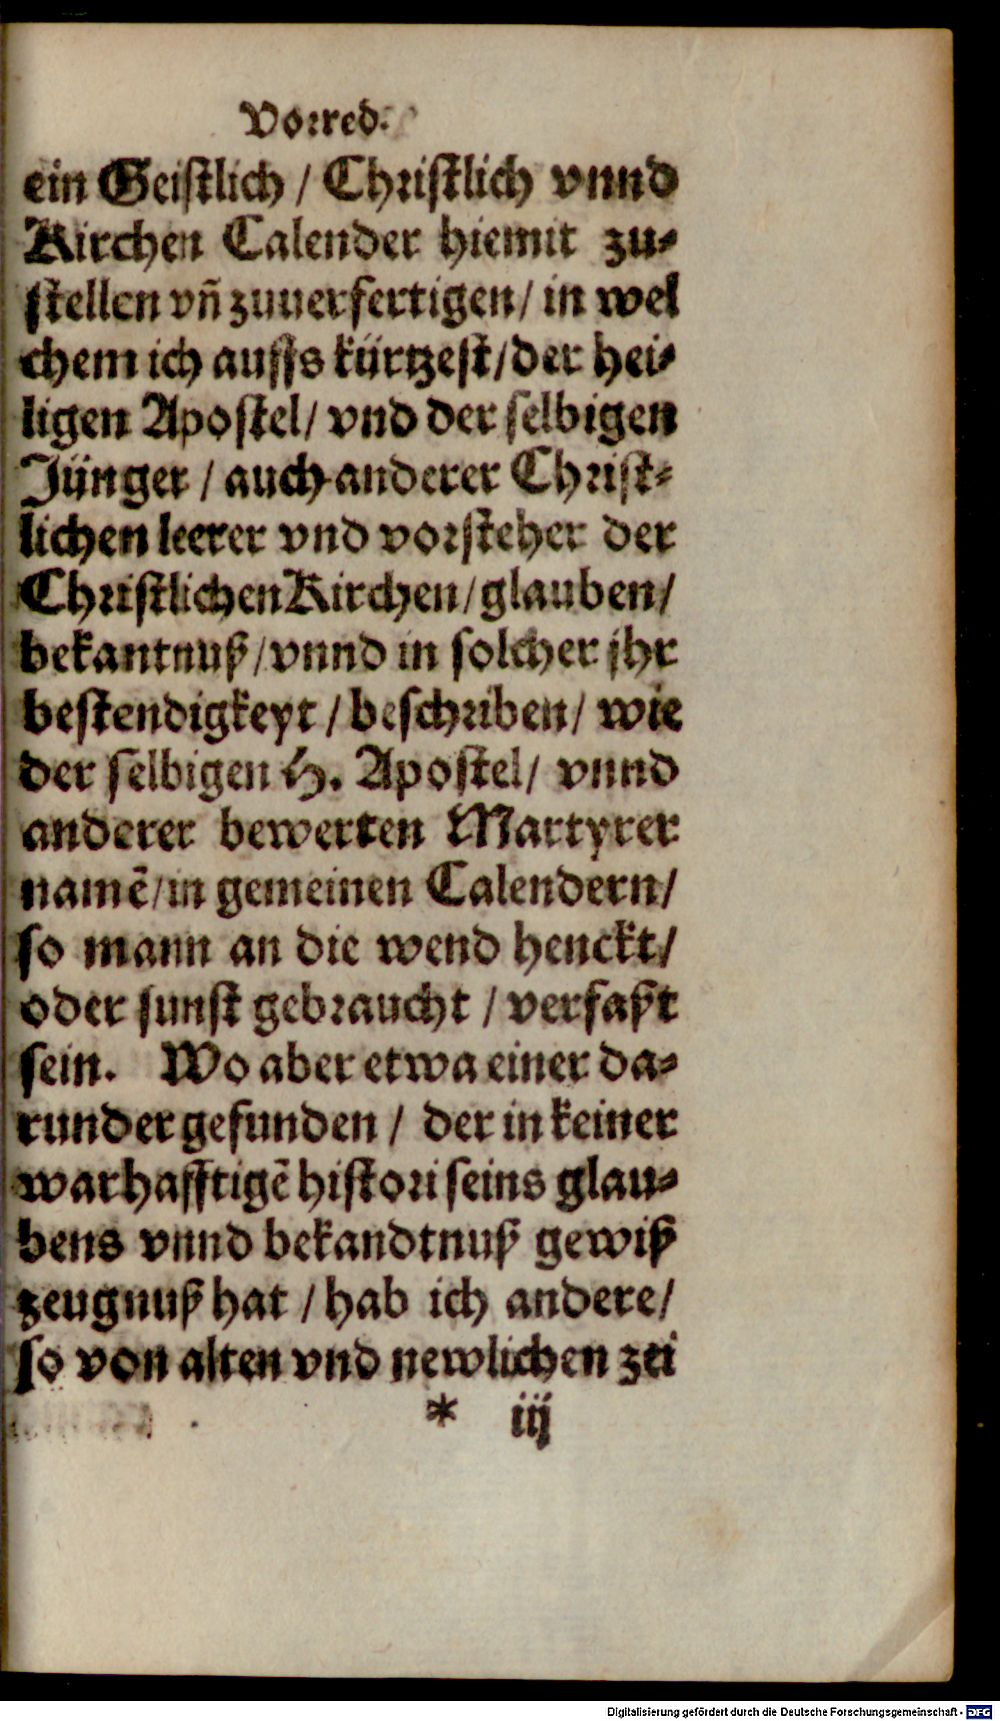 Vorred.
ein Geiſtlich / Chriſtlich vnnd
Kirchen Calender hiemit zu⸗
ſtellen vñ zuuerfertigen / in wel
chem ich auffs kürtzeſt / der hei⸗
ligen Apoſtel / vnd der ſelbigen
Jünger / auch anderer Chriſt⸗
lichen leerer vnd vorſteher der
Chriſtlichen Kirchen / glauben /
bekantnuß / vnnd in ſolcher jhr
beſtendigkeyt / beſchriben / wie
der ſelbigen H. Apoſtel / vnnd
anderer bewerten Martyrer
namẽ / in gemeinen Calendern /
ſo mann an die wend henckt /
oder ſunſt gebraucht / verfaßt
ſein. Wo aber etwa einer da⸗
runder gefunden / der in keiner
warhafftigẽ hiſtori ſeins glau⸗
bens vnnd bekandtnuß gewiß
zeugnuß hat / hab ich andere /
ſo von alten vnd newlichen zei
* iij
Digitalisierung gefördert durch die Deutsche Forschungsgemeinschaft - DFG